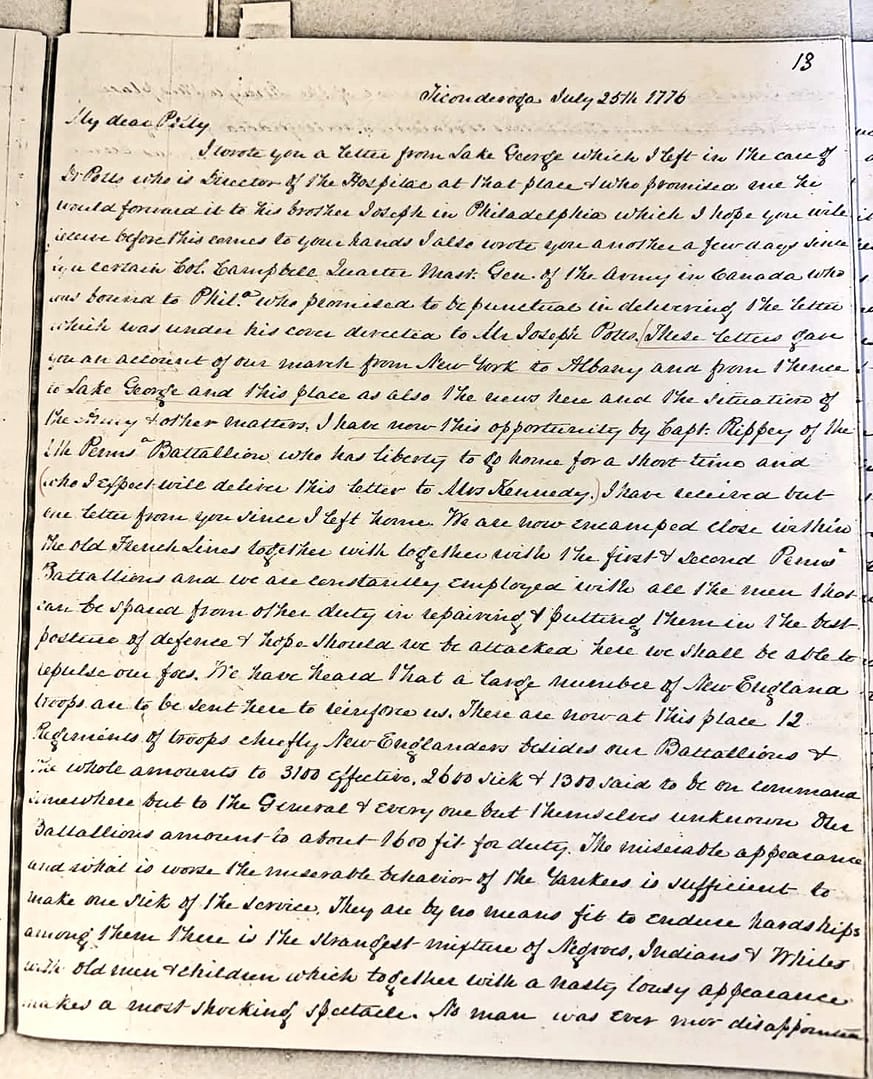 13
Ticonderoga July 25th 1776
My dear Polly
I wrote you a letter from Lake George which I left in the care of
Dr Potts who is Director of the Hospital at that place & who promised me he
would forward it to his brother Joseph in Philadelphia which I hope you will
receive before this comes to your hands I also wrote you another a few days since
by a certain Col. Campbell Quarter Mast. Gen. of the army in Canada who
was bound to Phil.a who promised to be punctual in delivering the letter
which was under his cover directed to Mr Joseph Potts. (These letters gave
you an account of our march from New York to Albany and from thence
to Lake George and this place as also the news here and the situation of
the Army & other matters. I have now this opportunity by Capt. Rippey of the
6th Penns.a Battallion who has liberty to go home for a short time and
(who I expect will deliver this letter to Mrs Kennedy.) I have received but
one letter from you since I left home. We are now encamped close within
the old French Lines together with together with the first & second Penns.a
Battallions and we are constantly employed with all the men that
can be spared from other duty in repairing & putting them in the best
posture of defence & hope should we be attacked here we shall be able to
repulse our foes. We have heard that a large number of New England
troops are to be sent here to reinforce us. There are now at this place 12
Regiments of troops chiefly New Englanders besides our Battallions &
the whole amounts to 3100 effective, 2600 sick & 1300 said to be on command
somewhere but to the General & every one but themselves unknown Our
Battallions amount to about 1600 fit for duty. The miserable appearance
and what is worse the miserable behavior of the Yankees is sufficient to
make one sick of the service. They are by no means fit to endure hardships
among them there is the strangest mixture of Negroes, Indians & Whites
with old men & children which together with a nasty lousy appearance
makes a most shocking spectacle. No man was ever mor disappointed